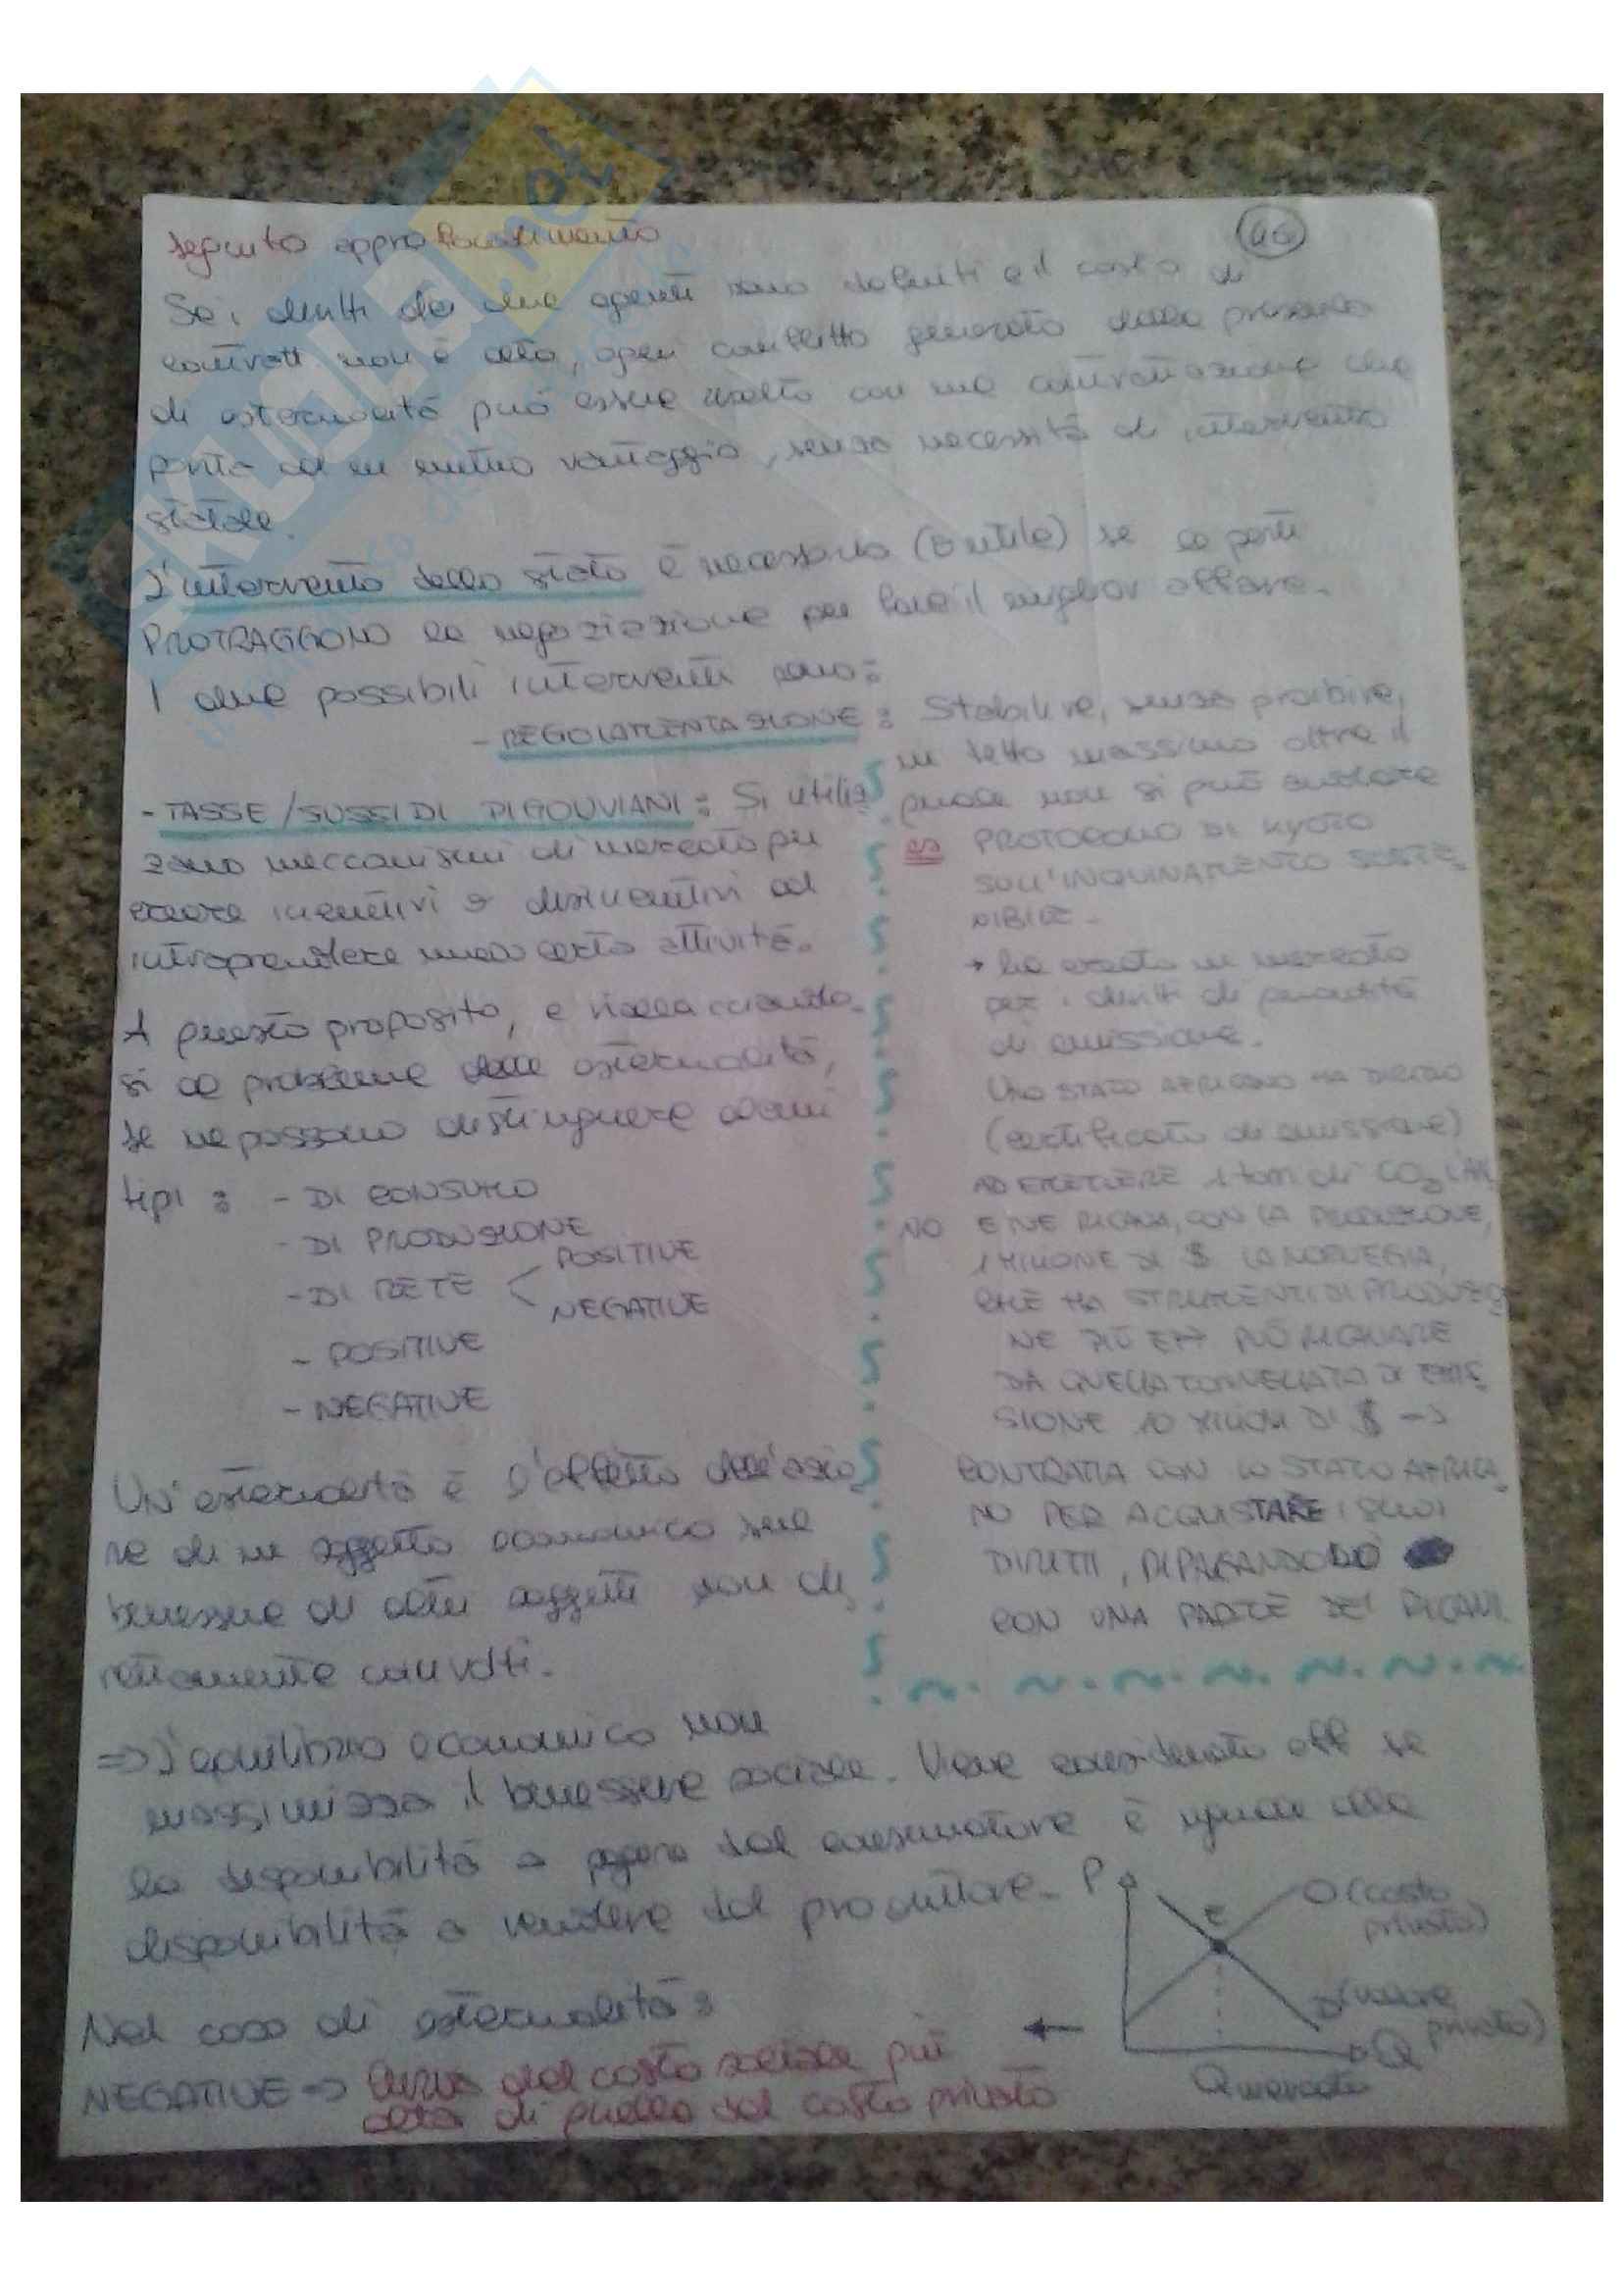 seguito approfondimento
46
Se i diritti dei due agenti sono definiti e il costo di
contratt. non è alto, ogni conflitto generato dalla presenza
di esternalità può essere risolto con una contrattazione che
porta ad un mutuo vantaggio, senza necessità di intervento
statale.
L'intervento dello stato è necessario (o utile) se le parti
PROTRAGGONO la negoziazione per fare il miglior affare.
I due possibili interventi sono:
- REGOLAMENTAZIONE: Stabilire, senza proibire,
un tetto massimo oltre il
quale non si può andare
es PROTOCOLLO DI KYOTO
SULL'INQUINAMENTO SOSTE
NIBILE.
→ ha creato un mercato
per i diritti di quantità
di emissione.
UNO STATO AFRICANO HA DIRITTO
(certificato di emissione)
AD EMETTERE 1 tonn di CO2 L'AN
NO E NE RICAVA, CON LA PRODUZIONE,
1 MILIONE DI $ LA NORVEGIA,
CHE HA STRUMENTI DI PRODUZIO
NE PIÙ EFF PUÒ RICAVARE
DA QUELLA TONNELLATA DI EMIS
SIONE 10 MILIONI DI $ →
CONTRATTA CON LO STATO AFRICA
NO PER ACQUISTARE I SUOI
DIRITTI, RIPAGANDOLO
CON UNA PARTE DEI RICAVI.
- TASSE/SUSSIDI PIGOUVIANI: Si utiliz
zano meccanismi di mercato per
creare incentivi o disincentivi ad
intraprendere una certa attività.
A questo proposito, e riallacciando
si al problema delle esternalità,
se ne possono distinguere alcuni
tipi: - DI CONSUMO
- DI PRODUZIONE
- DI RETE < POSITIVE
NEGATIVE
- POSITIVE
- NEGATIVE
Un'esternalità è l'effetto dell'azio
ne di un soggetto economico sul
benessere di altri soggetti non di
rettamente coinvolti.
=> L'equilibrio economico non
massimizza il benessere sociale. Viene considerato eff se
la disponibilità a pagare del consumatore è uguale alla
disponibilità a vendere del produttore.
P
E
O (costo
privato)
D (valore
privato)
Q
Q mercato
Nel caso di esternalità:
NEGATIVE => Curva del costo sociale più
alta di quella del costo privato